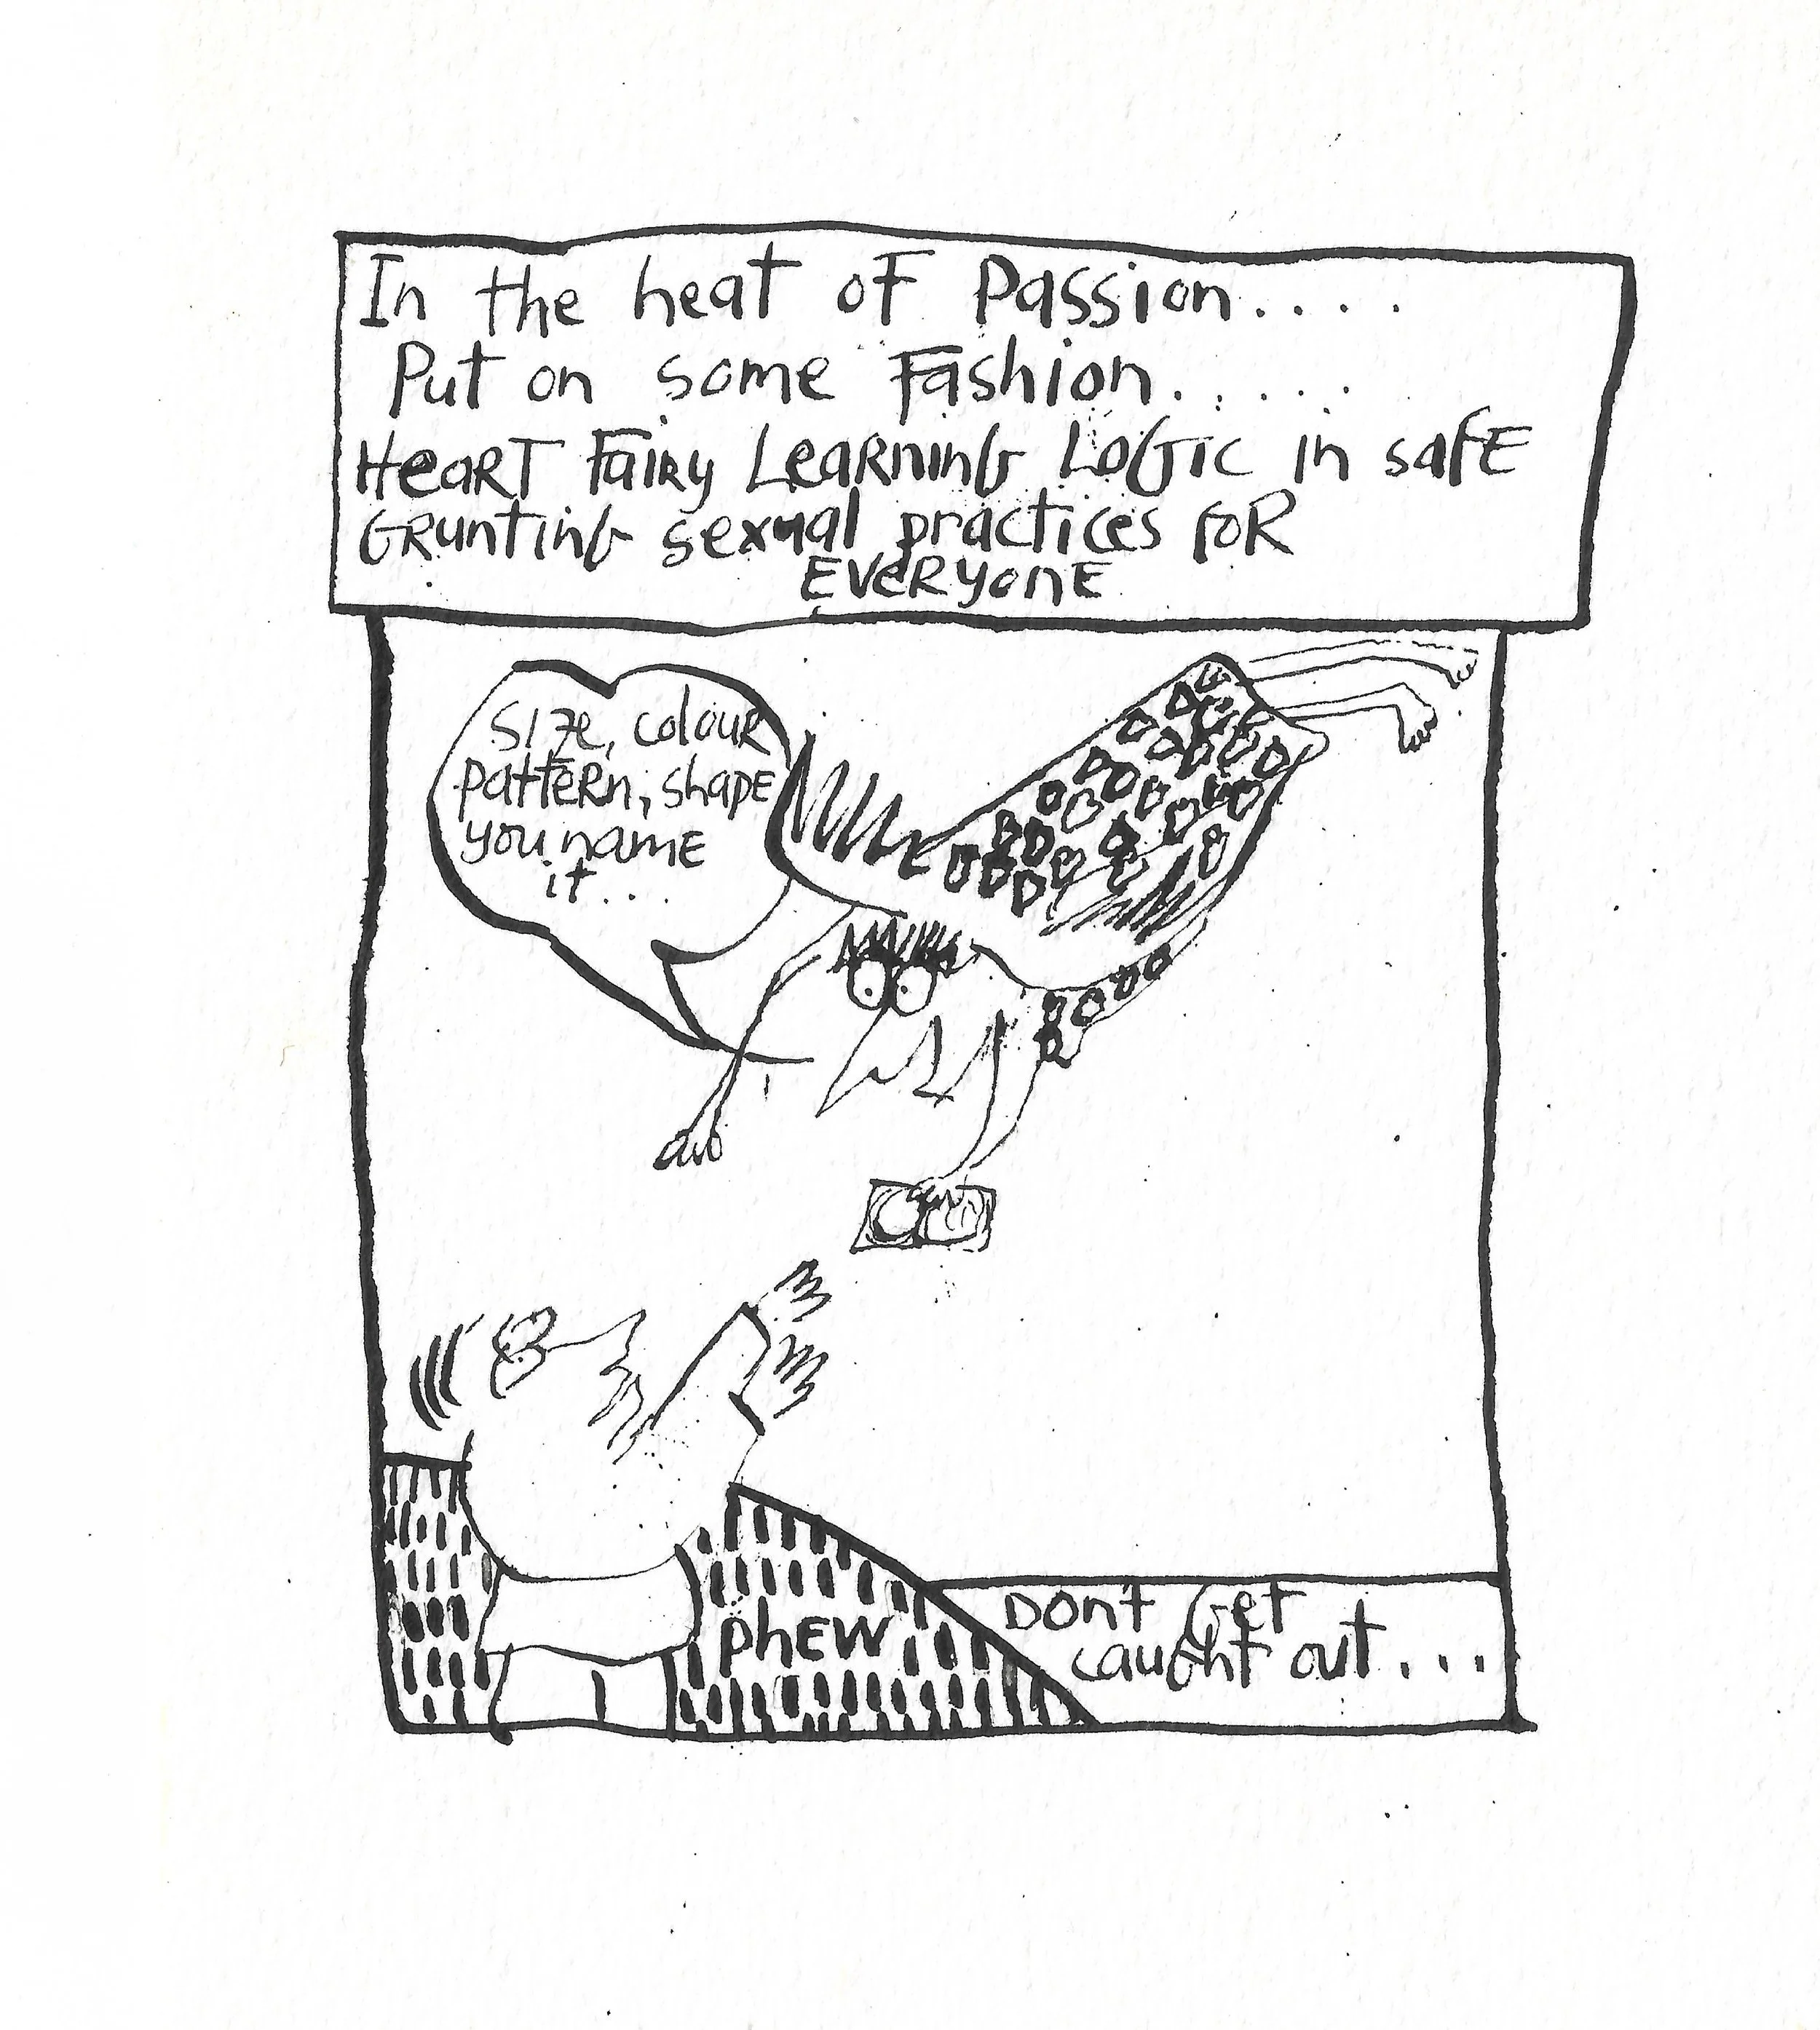 In the heat of Passion....
Put on some Fashion.....
HeaRT FaiRy LeaRninG LoGic in safE
GRuntinG sexual practices foR
EVeRyonE
Size, colouR
pattERn, shapE
you namE
it...
phEW
Dont Get
caught out...